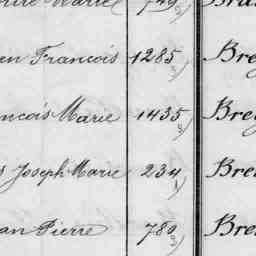 Marie 749 Bra
en François 1285 3) Bre
ncois Marie 1435 5) Bre
s Joseph Marie 234 1) Bre
an Pierre 780 3) Bre